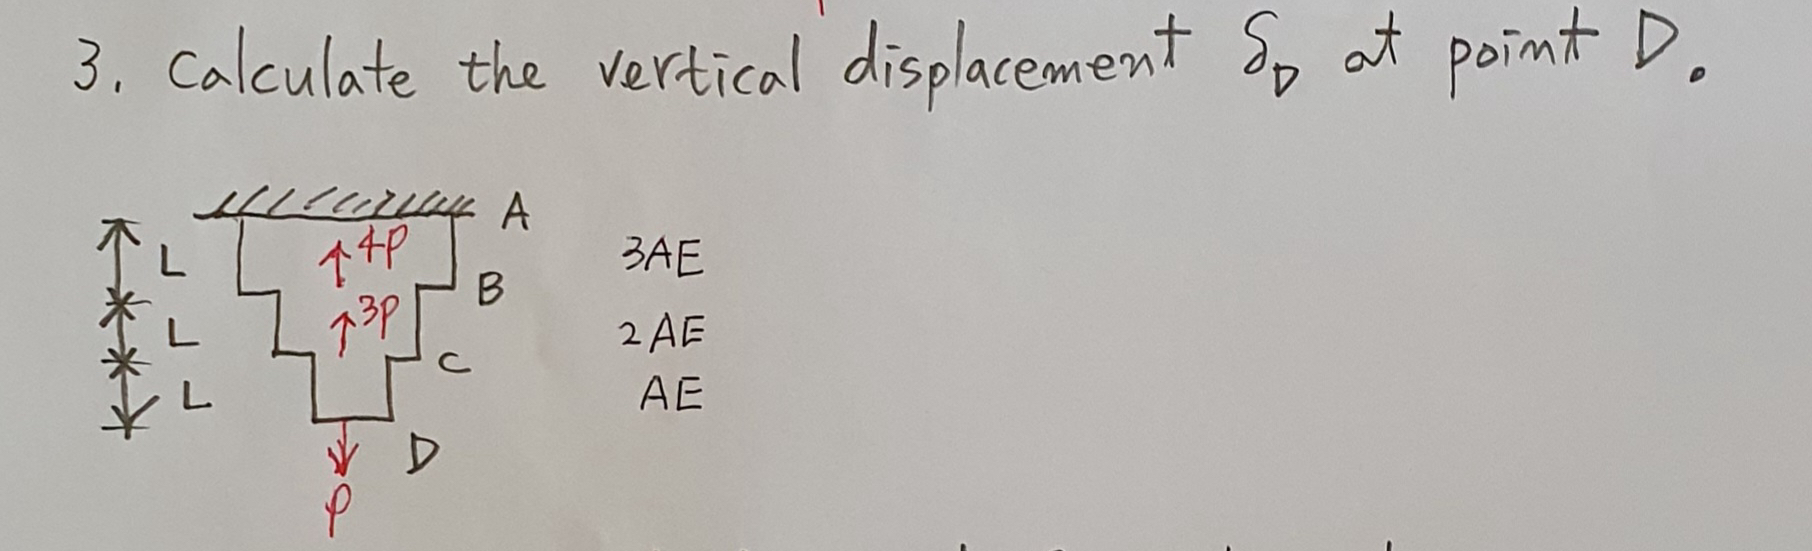 3. Calculate the vertical displacement δ_D at point D.
A
L
↑4P
3AE
B
L
↑3P
2AE
C
L
AE
D
P